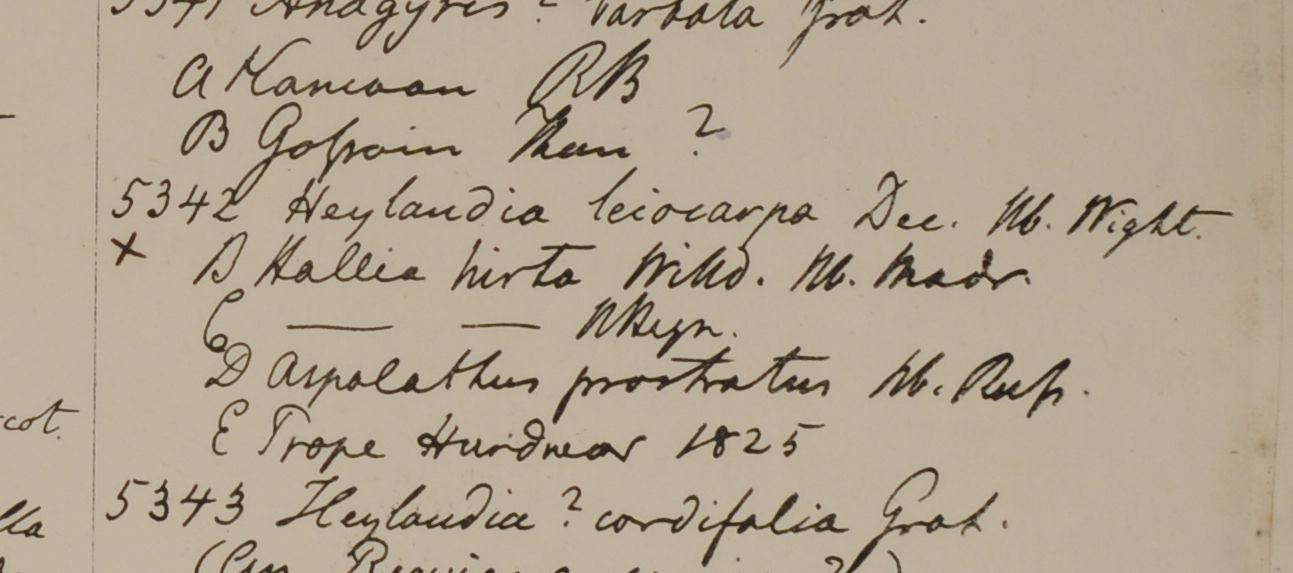 5341 Anagyris? barbata Grah.
A Kamaon RB
B Gossain Than ?
5342 Heylandia leiocarpa Dec. Hb. Wight.
x B Hallia hirta Willd. Hb. Madr.
C — — HBeyn.
D Aspalathus prostratus Hb. Russ.
E Prope Hurdwar 1825
5343 Heylandia? cordifolia Grah.
cot.
lla